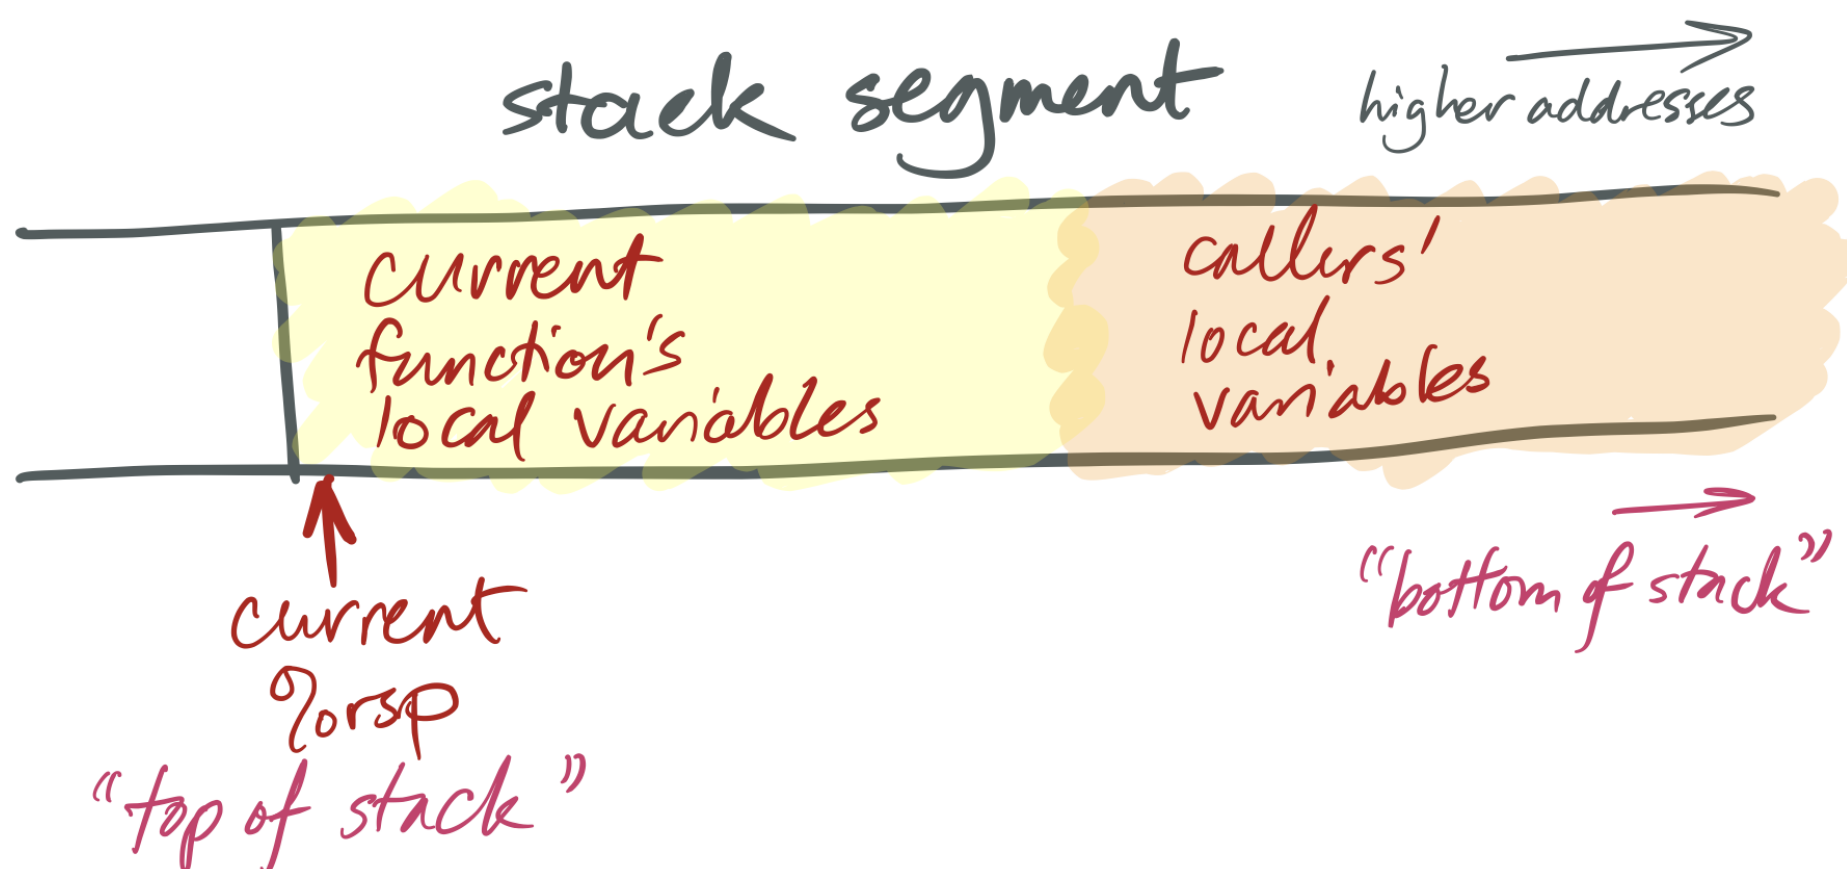 stack segment
higher addresses
current
function's
local variables
callers'
local
variables
current
%rsp
"top of stack"
"bottom of stack"